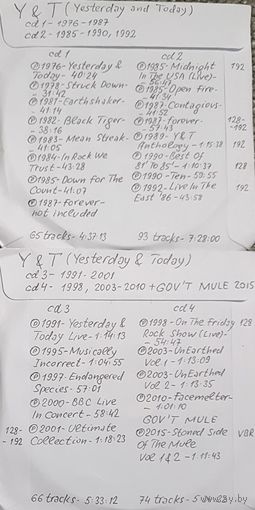 Y & T (Yesterday and Today)
cd 1 - 1976-1987
cd 2 - 1985-1990, 1992
cd 1
Ⓟ1976-Yesterday &
Today - 40:24
Ⓟ1978-Struck Down-
- 31:42
Ⓟ1981-Earthshaker-
- 41:14
Ⓟ1982-Black Tiger-
- 38:16
Ⓟ1983-Mean Streak-
- 41:05
Ⓟ1984-In Rock We
Trust - 43:28
Ⓟ1985-Down For The
Count - 41:07
Ⓟ1987-forever-
not included
65 tracks - 4:37:13
cd 2
Ⓟ1985-Midnight 192
In The USA (Live)-
Ⓟ1985-Open Fire-
Ⓟ1987-Contagious-
- 41:52
Ⓟ1987-forever- 128-
- 57:43 -192
Ⓟ1989-Y&T
Anthology - 1:15:38 192
Ⓟ1990-Best Of
81' To 85' - 1:10:37 128
Ⓟ1990-Ten - 59:55
Ⓟ1992-Live In The 192
East '86 - 43:58
93 tracks - 7:28:00
Y & T (Yesterday & Today)
cd 3 - 1991-2001
cd 4 - 1998, 2003-2010 + GOV'T MULE 2015
cd 3
Ⓟ1991-Yesterday &
Today Live - 1:14:13
Ⓟ1995-Musically
Incorrect - 1:04:55
Ⓟ1997-Endangered
Species - 57:01
Ⓟ2000-BBC Live
In Concert - 58:42
128- Ⓟ2001-Ultimate
- 192 Collection - 1:18:23
66 tracks - 5:33:12
cd 4
Ⓟ1998-On The Friday 128
Rock Show (Live)-
- 54:47
Ⓟ2003-UnEarthed
Vol 1 - 1:13:09
Ⓟ2003-UnEarthed
Vol 2 - 1:13:35
Ⓟ2010-Facemelter-
- 1:01:10
GOV'T MULE
Ⓟ2015-Stoned Side VBR
Of The Mule
Vol 1 & 2 - 1:11:43
74 tracks - 5